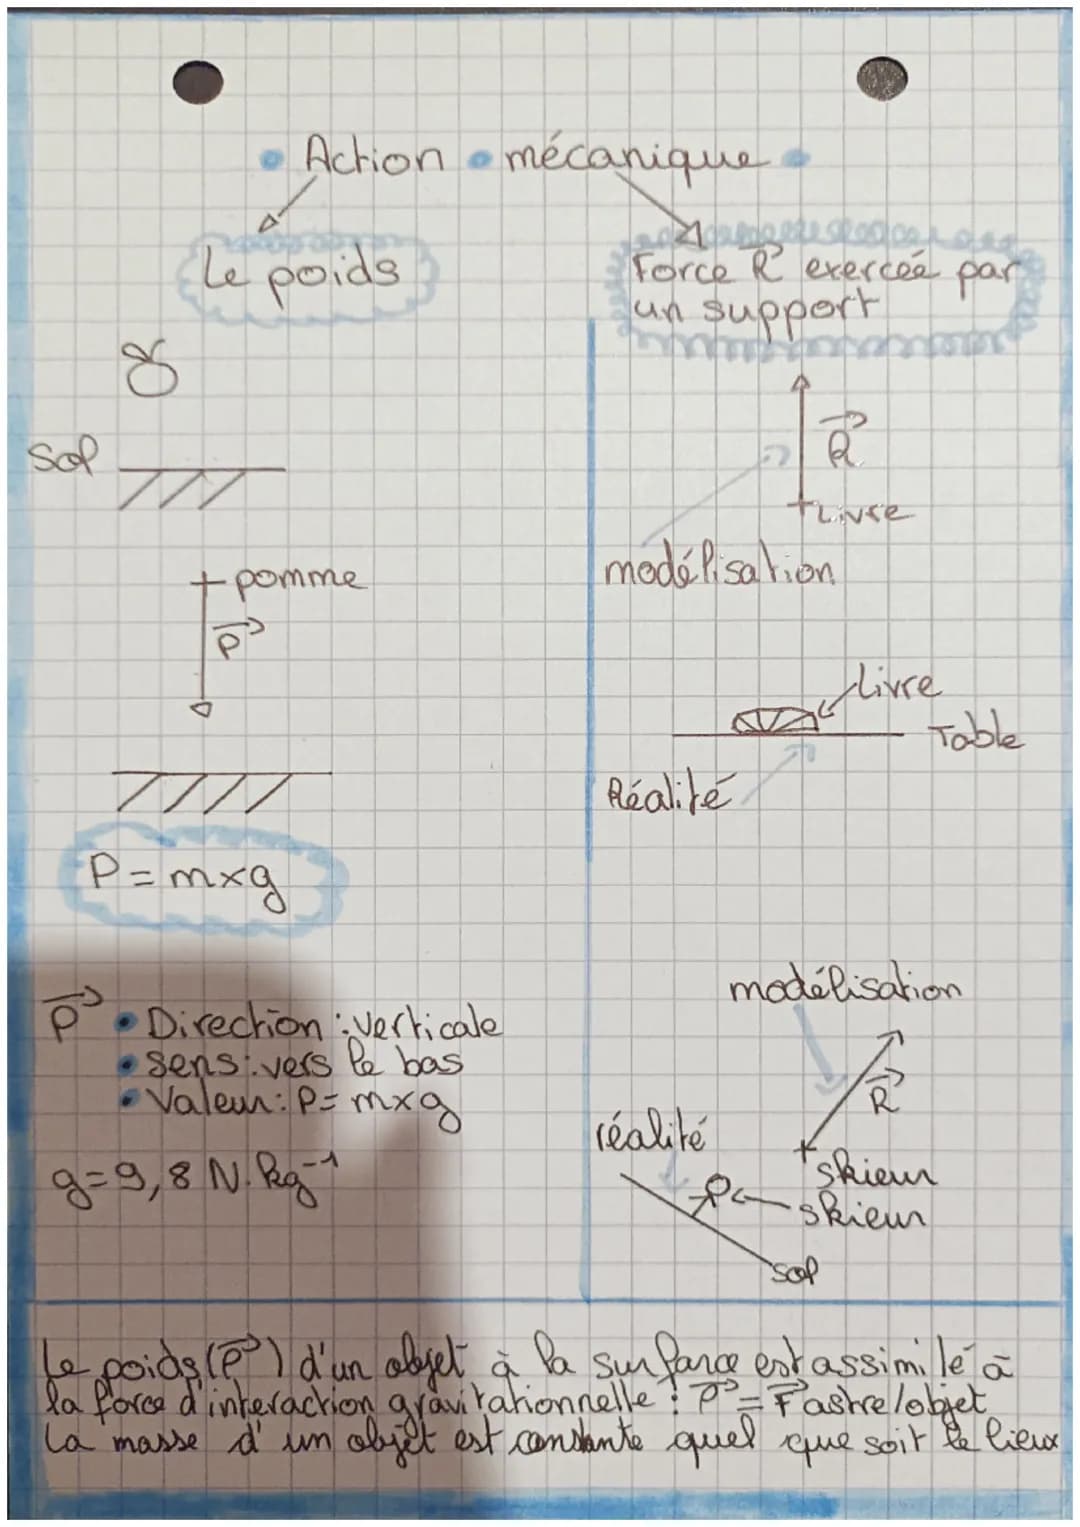 Action mécanique
Le poids
Force R⃗ exercée par
un support
Sol
R⃗
Livre
modélisation
pomme
P⃗
Livre
Table
Réalité
P = m×g
P⃗ • Direction : verticale
• sens : vers le bas
• Valeur : P = m×g
g = 9,8 N.kg⁻¹
modélisation
R⃗
réalité
skieur
skieur
sol
Le poids (P⃗) d'un objet à la surface est assimilé à
la force d'interaction gravitationnelle : P⃗ = F⃗ astre/objet
La masse d'un objet est constante quel que soit le lieux